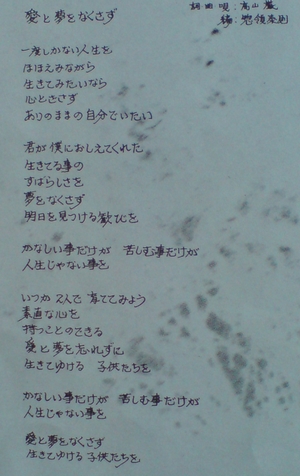 愛と夢をなくさず
詞曲唄:高山 厳
編:惣領泰則
一度しかない人生を
ほほえみながら
生きてみたいなら
心とざさず
ありのままの自分でいたい
君が僕におしえてくれた
生きてる事の
すばらしさを
夢をなくさず
明日を見つける歓びを
かなしい事だけが 苦しむ事だけが
人生じゃない事を
いつか 2人で 育ててみよう
素直な心を
持つことのできる
愛と夢を忘れずに
生きてゆける 子供たちを
かなしい事だけが 苦しむ事だけが
人生じゃない事を
愛と夢をなくさず
生きてゆける 子供たちを